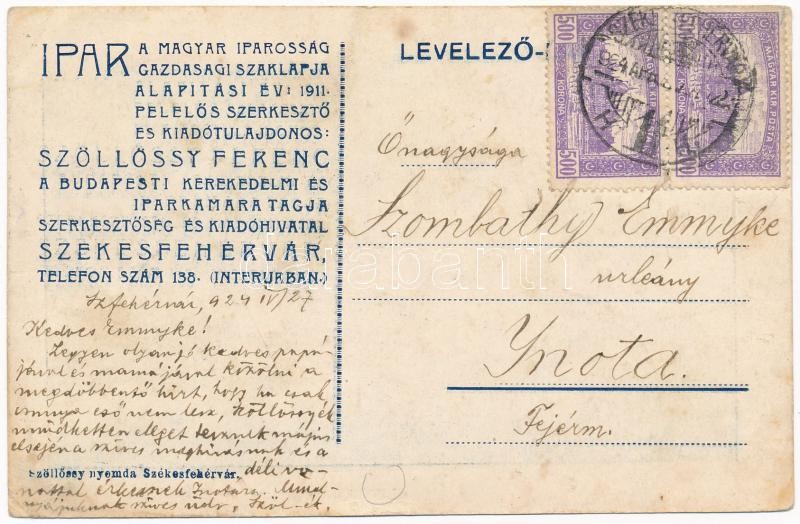 IPAR A MAGYAR IPAROSSÁG
GAZDASAGI SZAKLAPJA
ALAPITÁSI ÉV: 1911.
FELELŐS SZERKESZTŐ
ÉS KIADÓTULAJDONOS:
SZÖLLŐSSY FERENC
A BUDAPESTI KEREKEDELMI ÉS
IPARKAMARA TAGJA
SZERKESZTŐSÉG ÉS KIADÓHIVATAL
SZÉKESFEHÉRVÁR,
TELEFON SZÁM 138. (INTERURBAN.)
Szfehérvár, 924 IV/27
Kedves Emmyke!
Legyen olyan jó kedves papá-
jával és mamájával közölni a
megdöbbentő hírt, hogy ha csak
annyi eső nem lesz, Szöllőssyék
mindketten eleget tesznek május
elsején a szíves meghívásnak és a
déli vo-
nattal érkeznek Inotára. Mind-
szíves üdv,
Szöllőssy nyomda Székesfehérvár.
LEVELEZŐ-
500 500
MAGYAR KIR. POSTA
KORONA
Őnagysága
Szombathy Emmyke
urleány
Inota.
Fejérm.
darabanth